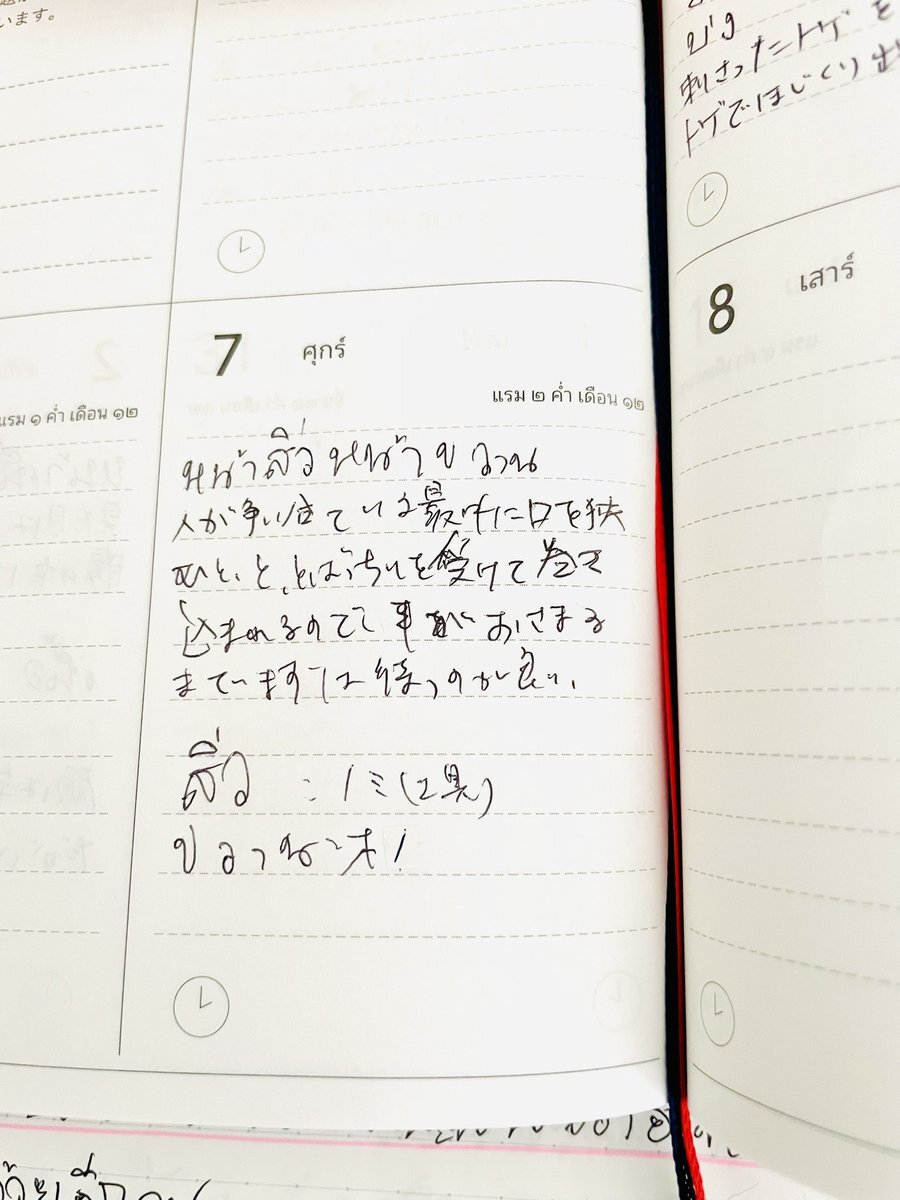 います。
บ่ง
刺さったトゲを
トゲでほじくり出
7 ศุกร์
8 เสาร์
แรม ๑ ค่ำ เดือน ๑๒
แรม ๒ ค่ำ เดือน ๑๒
หน้าสิ่วหน้าขวาน
人が争い
ている最中に口を挟
むと、とばっちりを受けて巻き
込まれるので 事がおさまる
まで まずは待つのが良い、
สิ่ว : ノミ(工具)
ขวาน